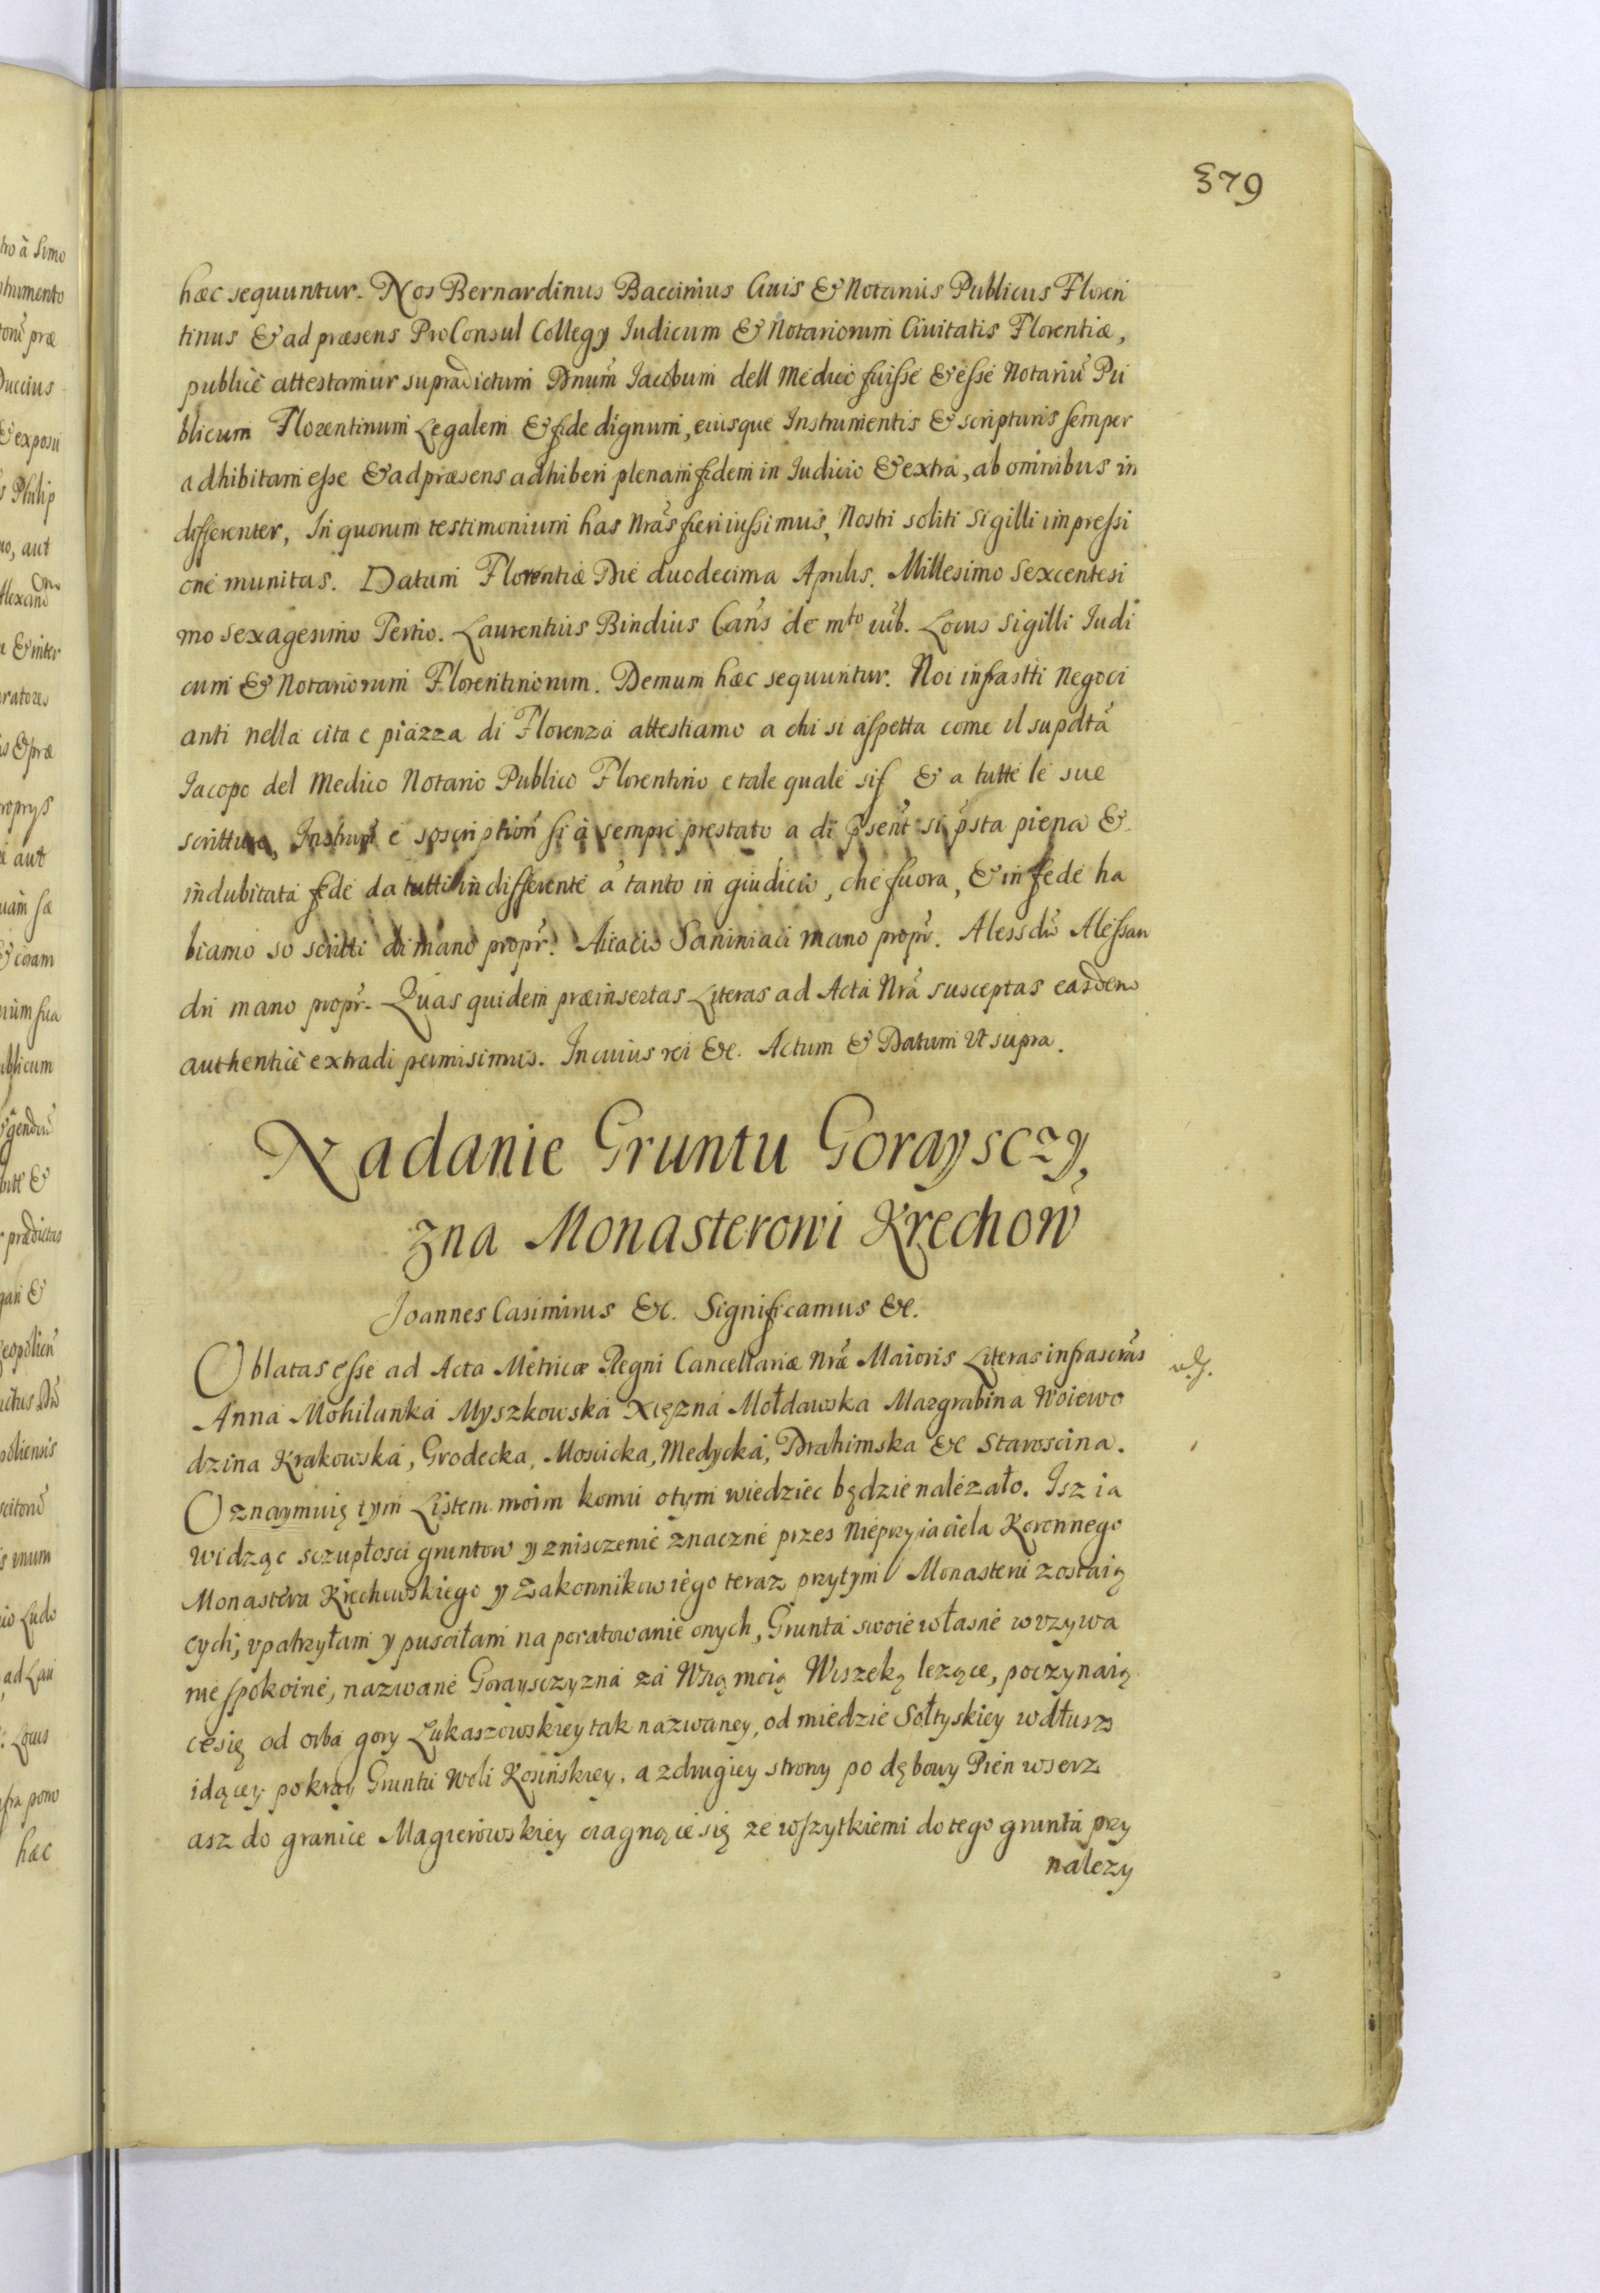 379
hæc sequuntur. Nos Bernardinus Baccinius Ciuis & Notarius Publicus Floren
tinus & ad præsens ProConsul Collegy Iudicum & Notariorum Ciuitatis Florentiæ,
publicè attestamur supradictum Dnum̃ Iacobum dell Medico fuisse & esse Notariũ Pu
blicum Florentinum Legalem & fide dignum, eiusque Instrumentis & scripturis semper
adhibitam esse & ad præsens adhiberi plenam fidem in Iudicio & extra, ab omnibus in
differenter, In quorum testimonium has Nrãs fieri iussimus, Nostri soliti sigilli impressi
one munitas. Datum Florentiæ Die duodecima Aprilis. Millesimo Sexcentesi
mo sexagesimo Tertio. Laurentius Bindius Canš de mto iũb. Locus Sigilli Iudi
cum & Notariorum Florentinorum. Demum hæc sequuntur. Noi infrastti Negoci
anti nella cita e piazza di Florenza attestiamo a chi si aspetta come il supdtã
Iacopo del Medico Notario Publico Florentino e tale quale sif & a tutte le sue
scritture, Instrum̃ e soscription̄ si à sempre prestato a di p̃senť si p̃sta piena &
indubitata fede da tutti indifferente à tanto in giudicio, che fuora, & in fede ha
biamo so scritti di mano propr̃. Aiacio Saniniaci mano propr̃. Alessdr̃o Alessan
dri mano propr̃. Quas quidem præinsertas Literas ad Acta Nrã susceptas easdem
authenticè extradi permisimus. In cuius rei &c. Actum & Datum Vt supra.
Nadanie Gruntu Goraysczy,
zna Monasterowi Krechow
Joannes Casimirus &c. Significamus &c.
Oblatas esse ad Acta Metricæ Regni Cancellariæ Nræ̃ Maioris Literas infrascrãs
Anna Mohilanka Myszkowska Xiężna Mołdawska Margrabina Woiewo
dzina Krakowska, Grodecka, Moscicka, Medycka, Drahimska &c Staroscina.
Oznaymuię tym Listem moim komu otym wiedziec będzie należało. Isz ia
widząc sczupłosci gruntow y znisczenie znaczne przes Nieprzyiaciela Koronnego
Monastera Krechowskiego y Zakonnikow iego teraz przytym Monasteru zostaią
cych, vpatrzyłam y pusciłam na poratowanie onych, Grunta swoie własne w vzywa
nie spokoine, nazwane Goraysczyzna za Wsią moią Wiszeką lezące, poczynaią
cesię od orba gory Lukaszowskiey tak nazwaney, od miedzie Sołtyskiey wdłusz
idącey pokray Gruntu Woli Kosińskiey, a zdrugiey strony po dębowy Pien wserz
asz do granice Magierowskiey ciagnącie się ze wszytkiemi do tego gruntu przy
nalezy